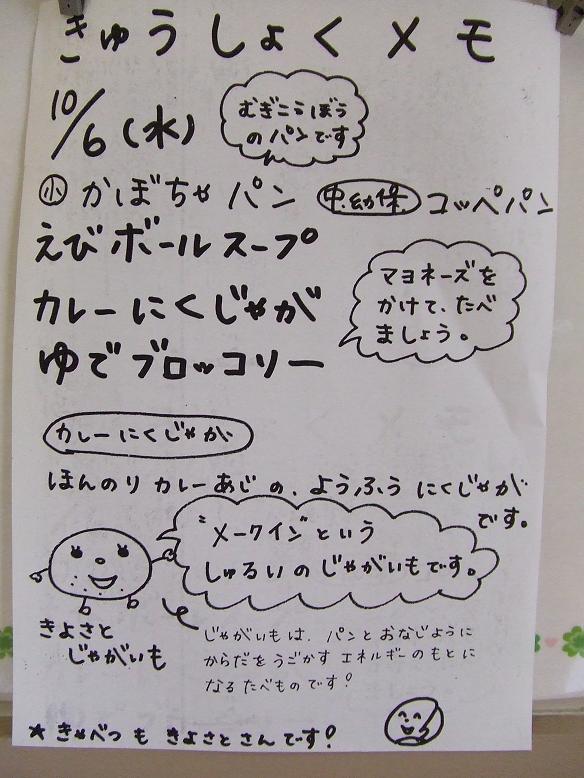 きゅうしょくメモ
10/6(水)
むぎこうぼう
のパンです
㊥ かぼちゃパン 中.幼.保. コッペパン
えびボールスープ
カレーにくじゃが
ゆでブロッコリー
マヨネーズを
かけて、たべ
ましょう。
カレーにくじゃが
ほんのりカレーあじの、ようふうにくじゃが
です。
"メークイン"という
しゅるいのじゃがいもです。
きよさと
じゃがいも
じゃがいもは、パンとおなじように
からだをうごかすエネルギーのもとに
なるたべものです!
★きゃべつもきよさとさんです!